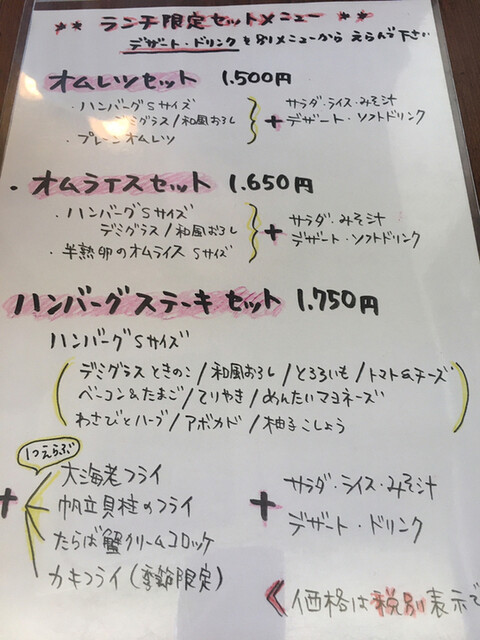 ** ランチ限定セットメニュー **
デザート・ドリンクを別メニューから えらんで下さい
オムレツセット 1.500円
・ハンバーグSサイズ
デミグラス/和風おろし
・プレーンオムレツ
+ サラダ・ライス・みそ汁
デザート・ソフトドリンク
・オムライスセット 1.650円
・ハンバーグSサイズ
デミグラス/和風おろし
・半熟卵のオムライス Sサイズ
+ サラダ・みそ汁
デザート・ソフトドリンク
ハンバーグステーキセット 1.750円
ハンバーグSサイズ
(デミグラスときのこ/和風おろし/とろろいも/トマト&チーズ
ベーコン&たまご/てりやき/めんたいマヨネーズ
わさびとハーブ/アボカド/柚子こしょう)
1つえらぶ
+ 大海老フライ
帆立貝柱のフライ
たらば蟹クリームコロッケ
カキフライ(季節限定)
+ サラダ・ライス・みそ汁
デザート・ドリンク
価格は税別表示で